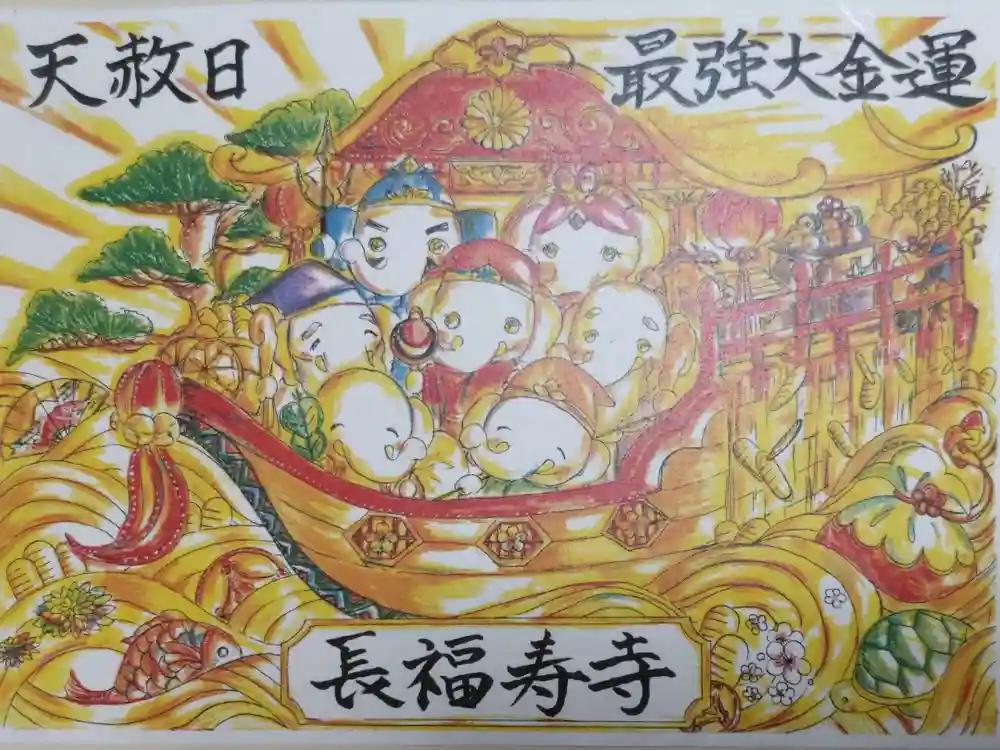 天赦日
最強大金運
長福寿寺